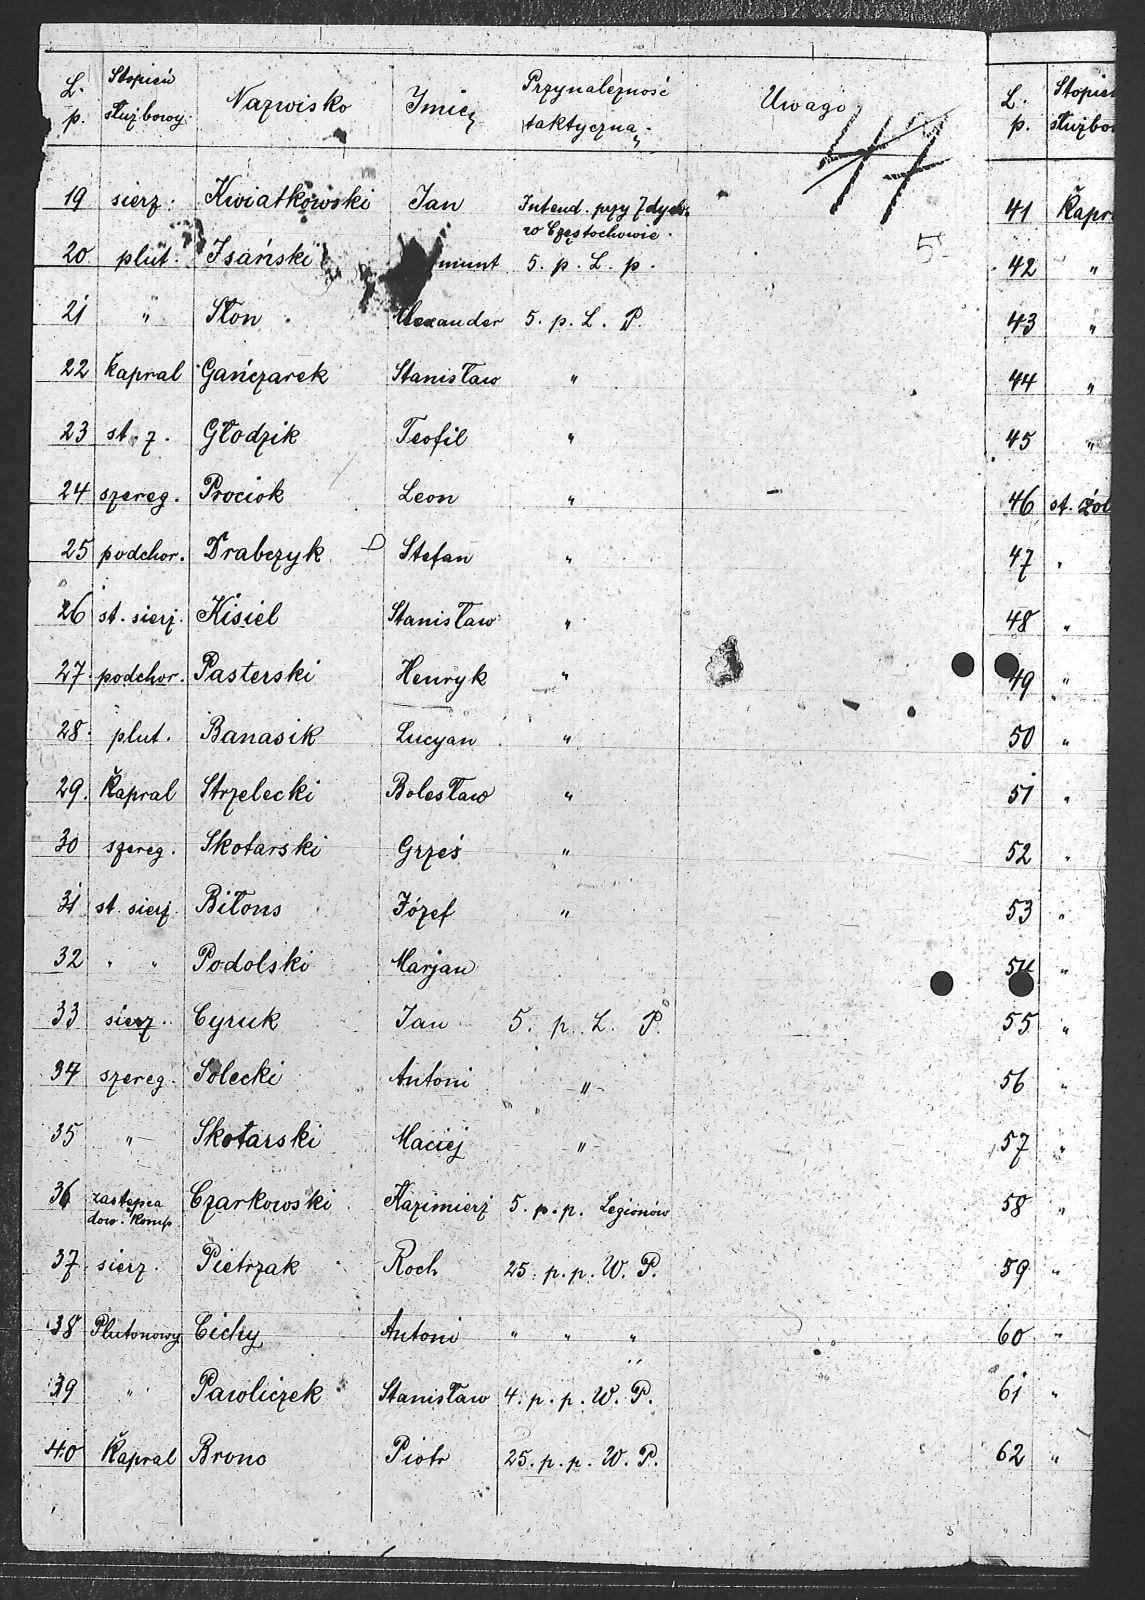 L. p. Stopień służbowy Nazwisko Imię Przynależność taktyczna Uwaga
19 sierż. Kwiatkowski Jan Intend. przy 7 dyw. w Częstochowie.
20 plut. Isański munt 5. p. L. p.
21 " Słon Alexander 5. p. L. P.
22 Kapral Gańczarek Stanisław "
23 st. ż. Głodzik Teofil "
24 szereg. Prociok Leon "
25 podchor. Drabczyk D Stefan "
26 st. sierż. Kisiel Stanisław "
27. podchor. Pasterski Henryk "
28. plut. Banasik Lucyan "
29. Kapral Strzelecki Bolesław "
30 szereg. Skotarski Grześ "
31 st. sierż. Biłons Józef "
32 " " Podolski Marjan
33 sierż. Cyruk Jan 5. p. L. P.
34 szereg. Solecki Antoni "
35 " Skotarski Maciej "
36 zastępca dow. komp. Czarkowski Kazimierz 5. p. p. Legionów
37 sierż. Pietrzak Roch 25. p. p. W. P.
38 Plutonowy Cichy Antoni " " "
39 " Pawliczek Stanisław 4. p. p. W. P.
40 Kapral Brono Piotr 25. p. p. W. P.
L. p. Stopień służbo
41 Kapr
42 "
43 "
44 "
45 "
46 st. żoł
47 "
48 "
49 "
50 "
51 "
52 "
53 "
54 "
55 "
56 "
57 "
58 "
59 "
60 "
61 "
62 "